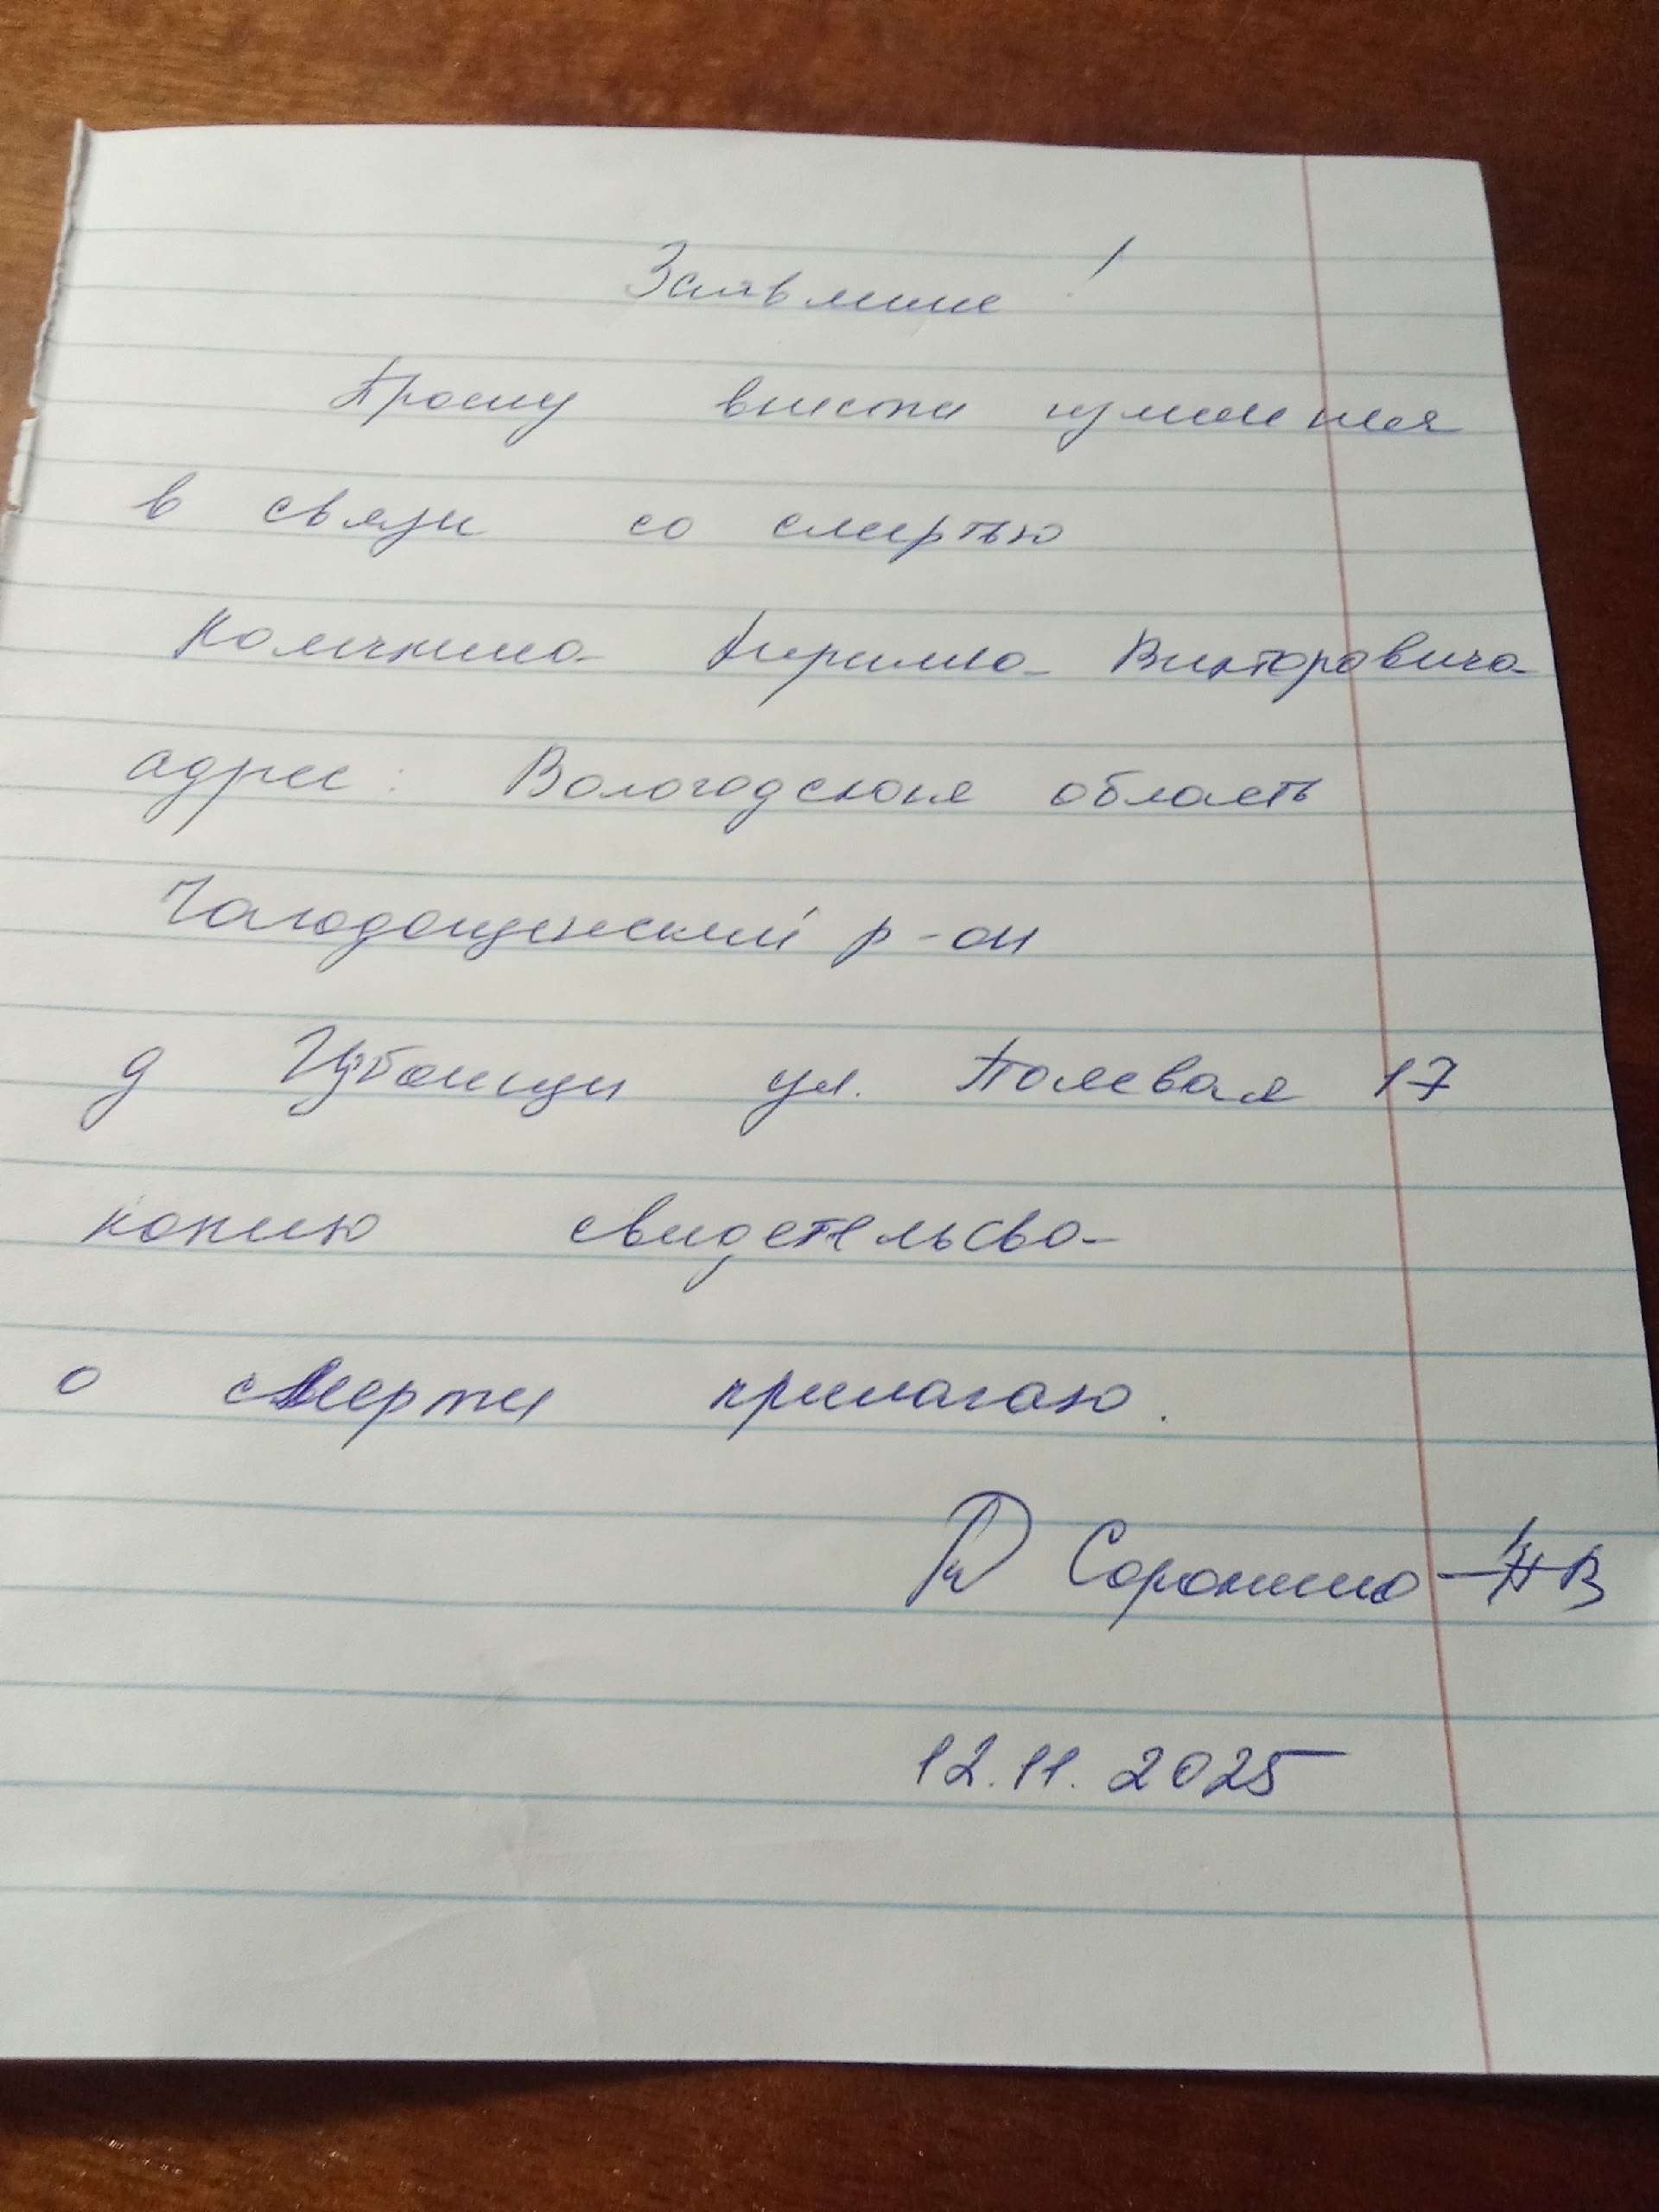 Заявление!
Прошу внести изменения
в связи со смертью
Кирилла Викторовича
адрес: Вологодская область
Чагодощенский р-он
д Избоищи ул. Полевая 17
копию свидетельсва
о смерти прилагаю.
Сорокина НВ
12.11.2025